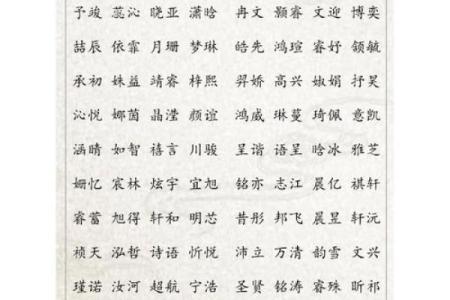 予峻 蕊沁 晓亚 潇晗 冉文 颢睿 文迎 博奕
喆辰 依霏 月珊 梦琳 皓先 鸿瑄 睿妤 颌毓
承初 姝益 靖睿 梓熙 羿娇 高兴 婌娟 抒昊
沁悦 娜茵 晶滢 颜谊 鸿威 琳蔓 琦佩 意凯
涵晴 如智 禧言 川骏 呈谐 语呈 晗冰 雅芝
姗忆 宸林 炫宇 宜旭 铭亦 志江 晨亿 祺轩
睿蕾 旭得 轩和 明芯 昔彤 邦飞 晨昱 轩沅
祯天 泓哲 诗语 忻悦 沛立 万清 韵雪 文兴
瑾诺 汝河 超航 宁浩 圣贤 铭涛 睿殊 昕祁